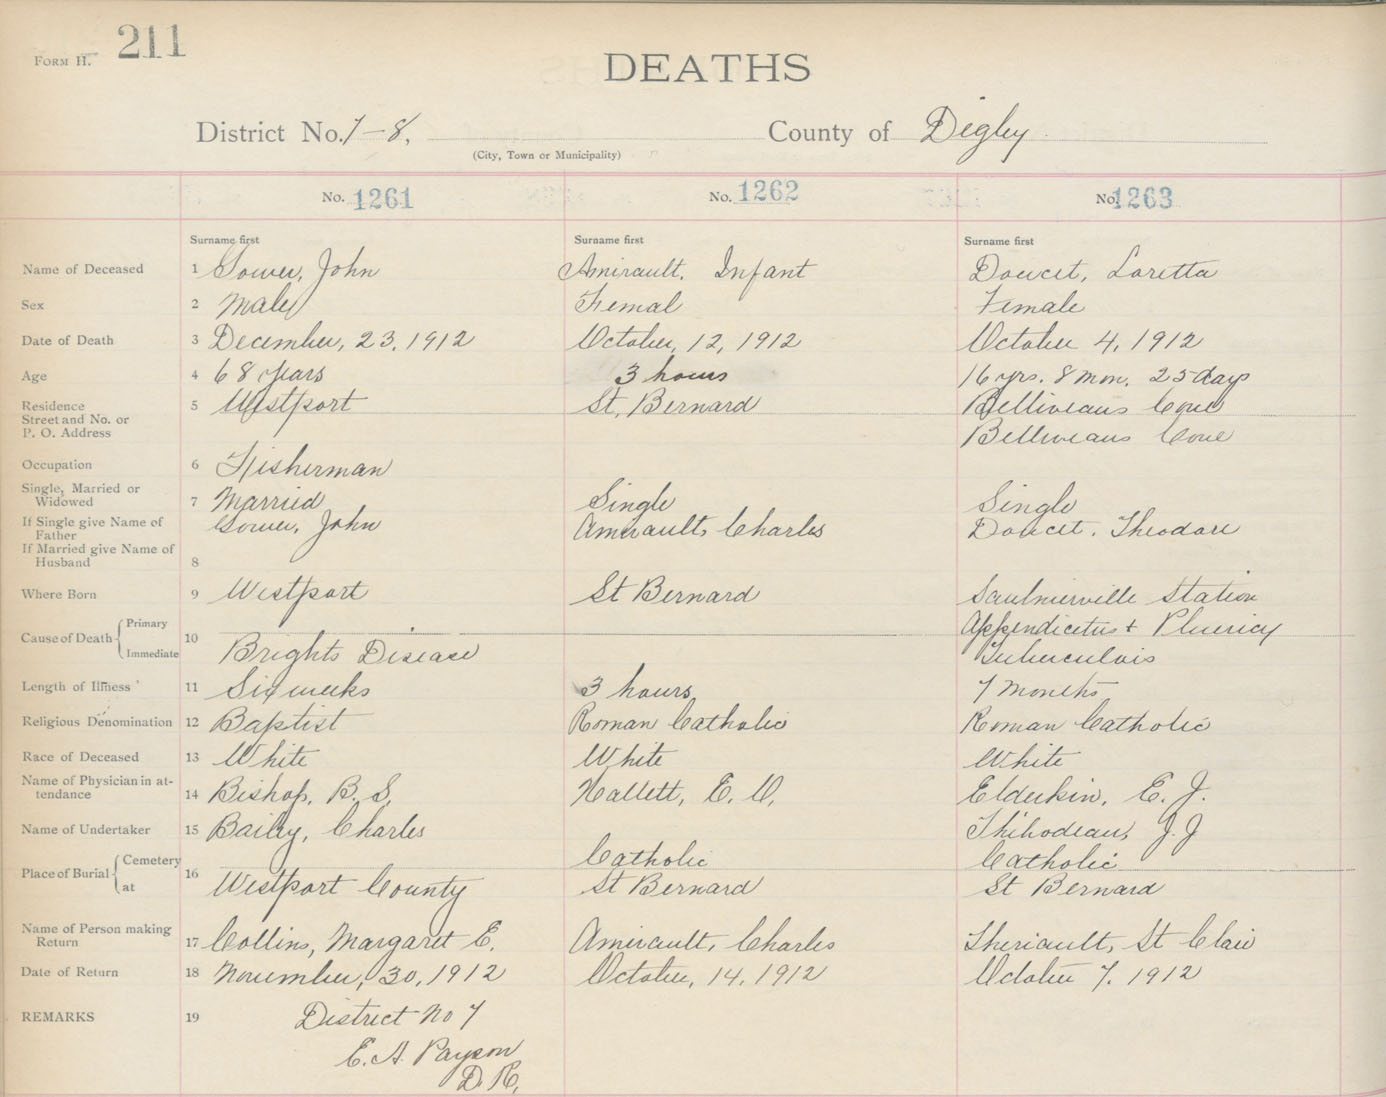 FORM H. 211
DEATHS
District No. 7-8, County of Digby
(City, Town or Municipality)
No. 1261 No. 1262 No. 1263
Surname first Surname first Surname first
Name of Deceased 1 Gower, John Amirault, Infant Doucet, Loretta
Sex 2 Male Femal Female
Date of Death 3 December, 23, 1912 October, 12, 1912 October 4, 1912
Age 4 68 years 3 hours 16 yrs. 8 mon. 25 days
Residence 5 Westport St, Bernard Belliveaus Cove
Street and No. or
P. O. Address Belliveaus Cove
Occupation 6 Fisherman
Single, Married or
Widowed 7 Married Single Single
If Single give Name of
Father Gower, John Amirault, Charles Doucet, Theodore
If Married give Name of
Husband 8
Where Born 9 Westport St Bernard Saulnierville Station
Cause of Death Primary 10 Appendicetus + Pluericy
Immediate Brights Disease Tuberculois
Length of Illness 11 Six weeks 3 hours 7 Months
Religious Denomination 12 Baptist Roman Catholic Roman Catholic
Race of Deceased 13 White White White
Name of Physician in at-
tendance 14 Bishop, B. S. Hallett, E. O, Elderkin, E. J.
Name of Undertaker 15 Bailey, Charles Thibodeau, J. J
Place of Burial Cemetery 16 Catholic Catholic
at Westport County St Bernard St Bernard
Name of Person making
Return 17 Collins, Margaret E. Amirault, Charles Theriault, St Clair
Date of Return 18 November, 30, 1912 October, 14, 1912 October 7, 1912
REMARKS 19 District No 7
E. A. Payson
D. R,